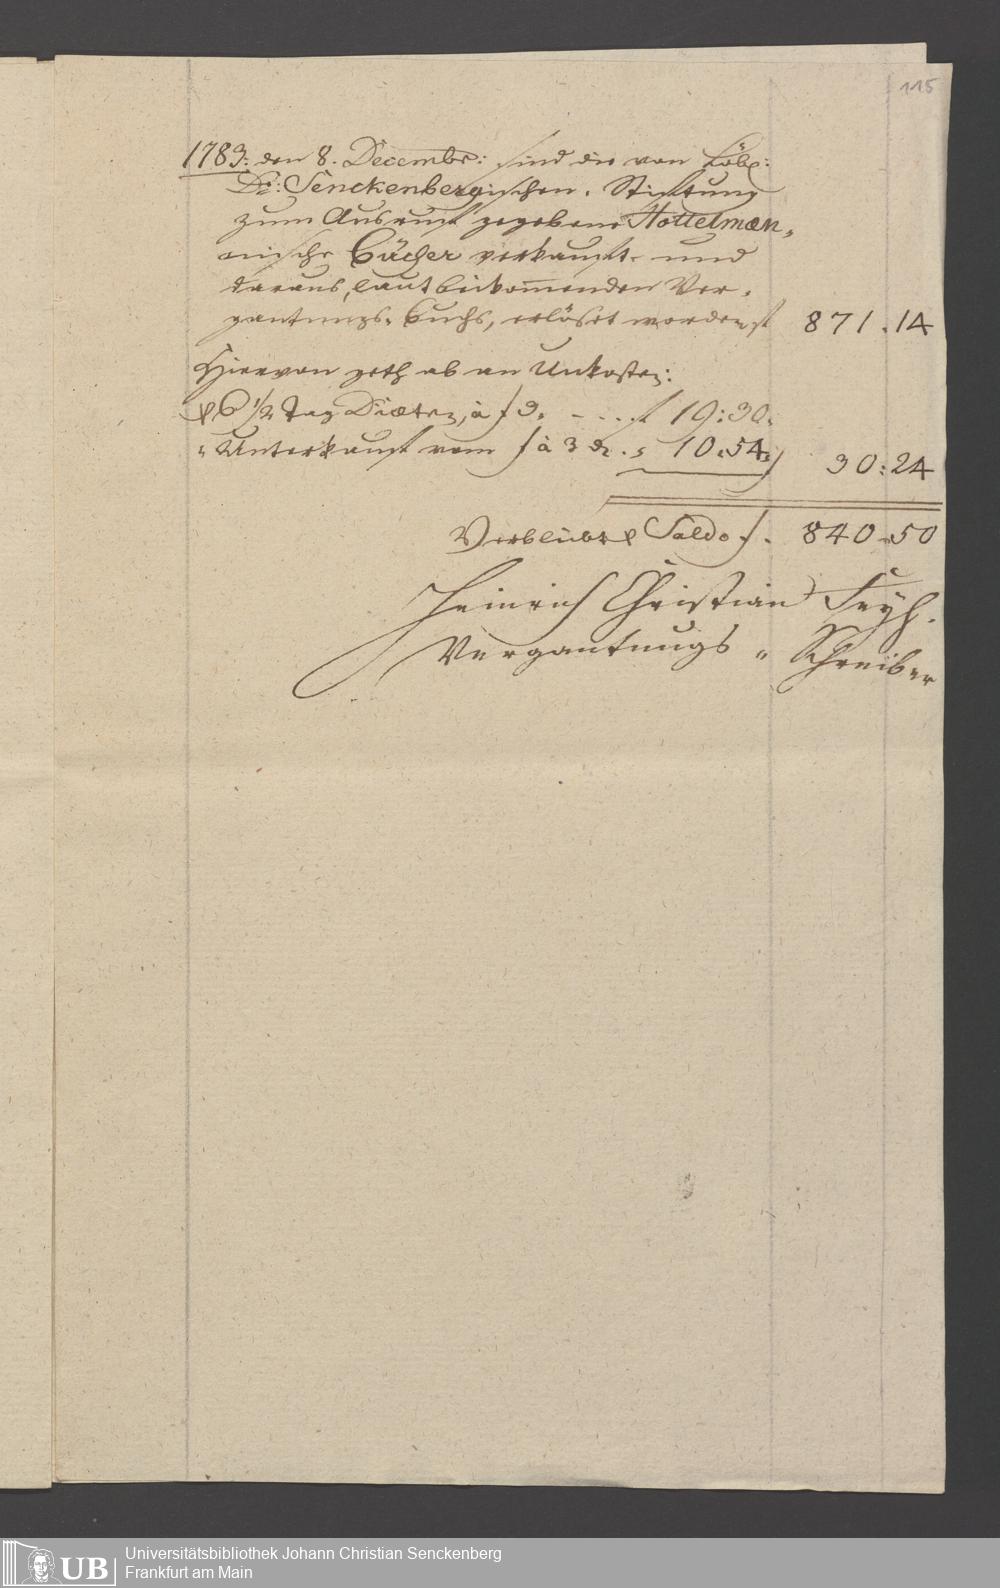 115
1783: den 8. Decembr: sind die von Löbl:
Dr: Senckenbergischen. Stiftung
zum Ausruf gegebene Hottelmän„
nische Bücher verkauft- und
daraus, laut beikom̅enden Ver„
gantungs. Buchs, erlößet worden f 871.14
Hiervon geth ab an Unkosten:
6 1/2 Tag Diæten, à f 3. - - . . f 19:30.
„ Unterkauf vom f à 3 . „ 10.54. 30:24
Verbleibt Saldo f. 840.50
Heinrich Christian Feyh.
Vergantungs „ Schreiber
UB
Universitätsbibliothek Johann Christian Senckenberg
Frankfurt am Main